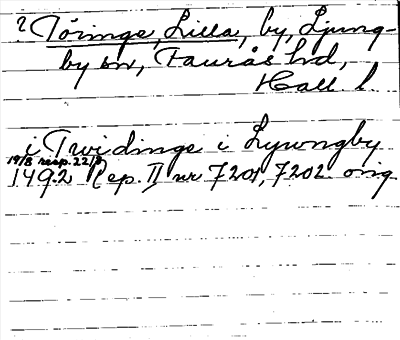 ? Töringe, Lilla, by, Ljung-
by sn, Faurås hd,
Hall. l.
i Twidinge i Lywngby
19/8 resp. 22/8
1492 Rep. II nr 7201, 7202 orig